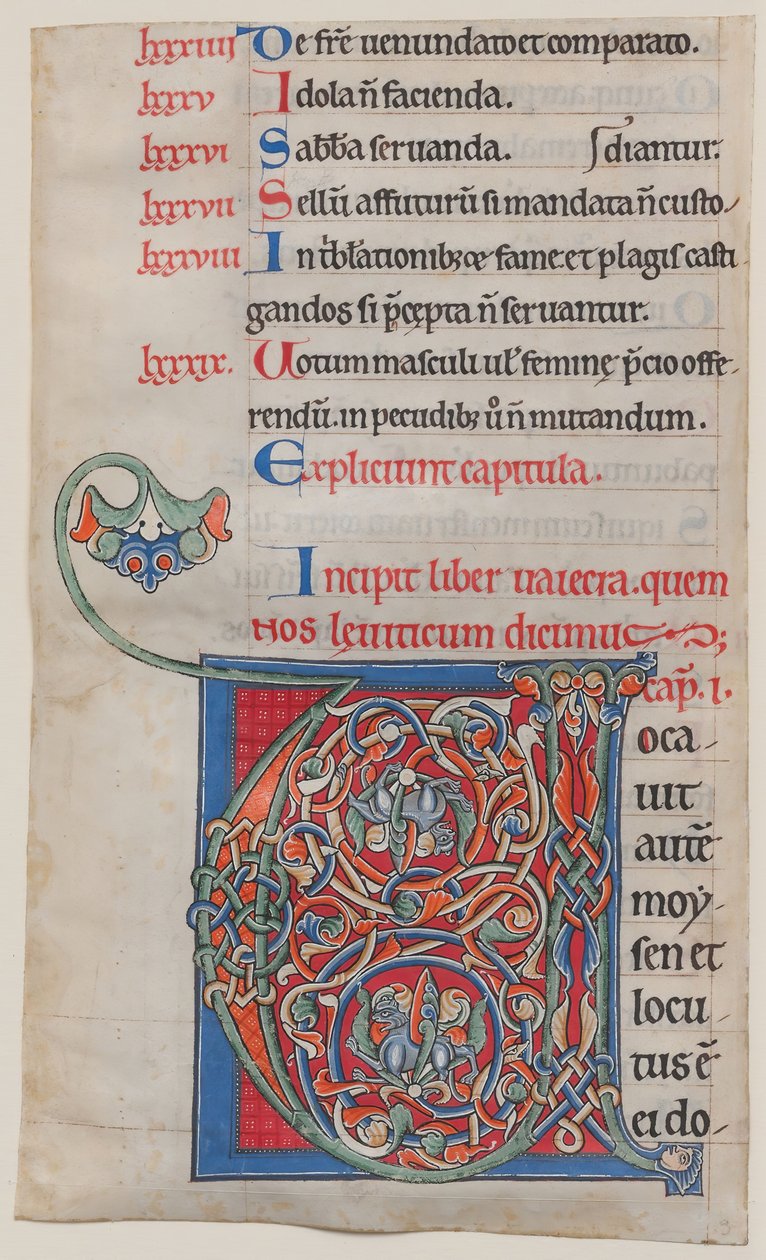 lxxxiiii De fr̄e uenundato et comparato.
lxxxv Idola n̄ facienda.
lxxxvi Sabb̄a seruanda. ſdiantur.
lxxxvii Bellū affuturū si mandata n̄ custo-
lxxxviii In t̄b̄lationibꝫ fame et plagis casti
gandos si p̄cepta n̄ seruantur.
lxxxix. Uotum masculi ul̄ feminę p̄cio offe-
rendū. in pecudibꝫ uͦ n̄ mutandum.
Expliciunt capitula.
Incipit liber uaiecra. quem
nos leuiticum dicimus;
cap̄. i.
V
oca-
uit
autē
moẏ-
sen et
locu-
tus ē
ei do-